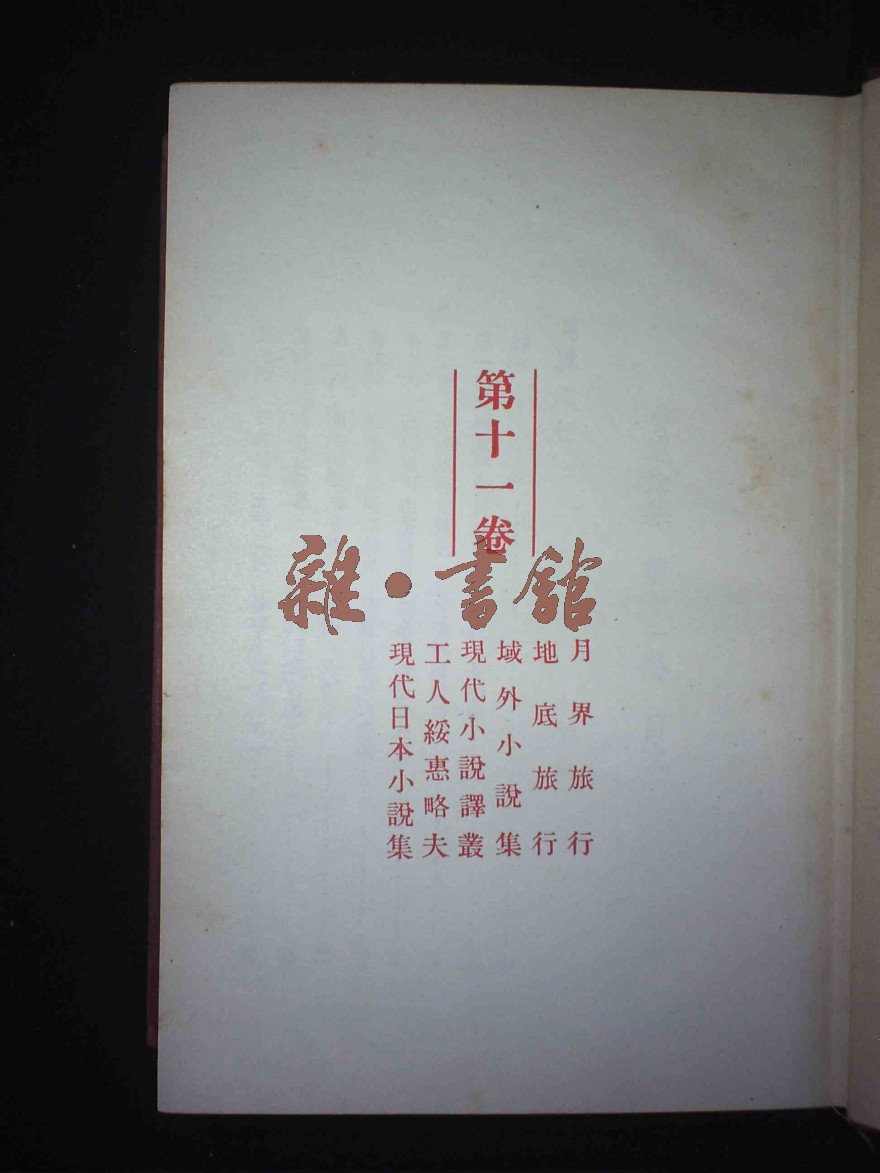 第十一卷
雜·書館
月界旅行
地底旅行
域外小說集
現代小說譯叢
工人綏惠略夫
現代日本小說集